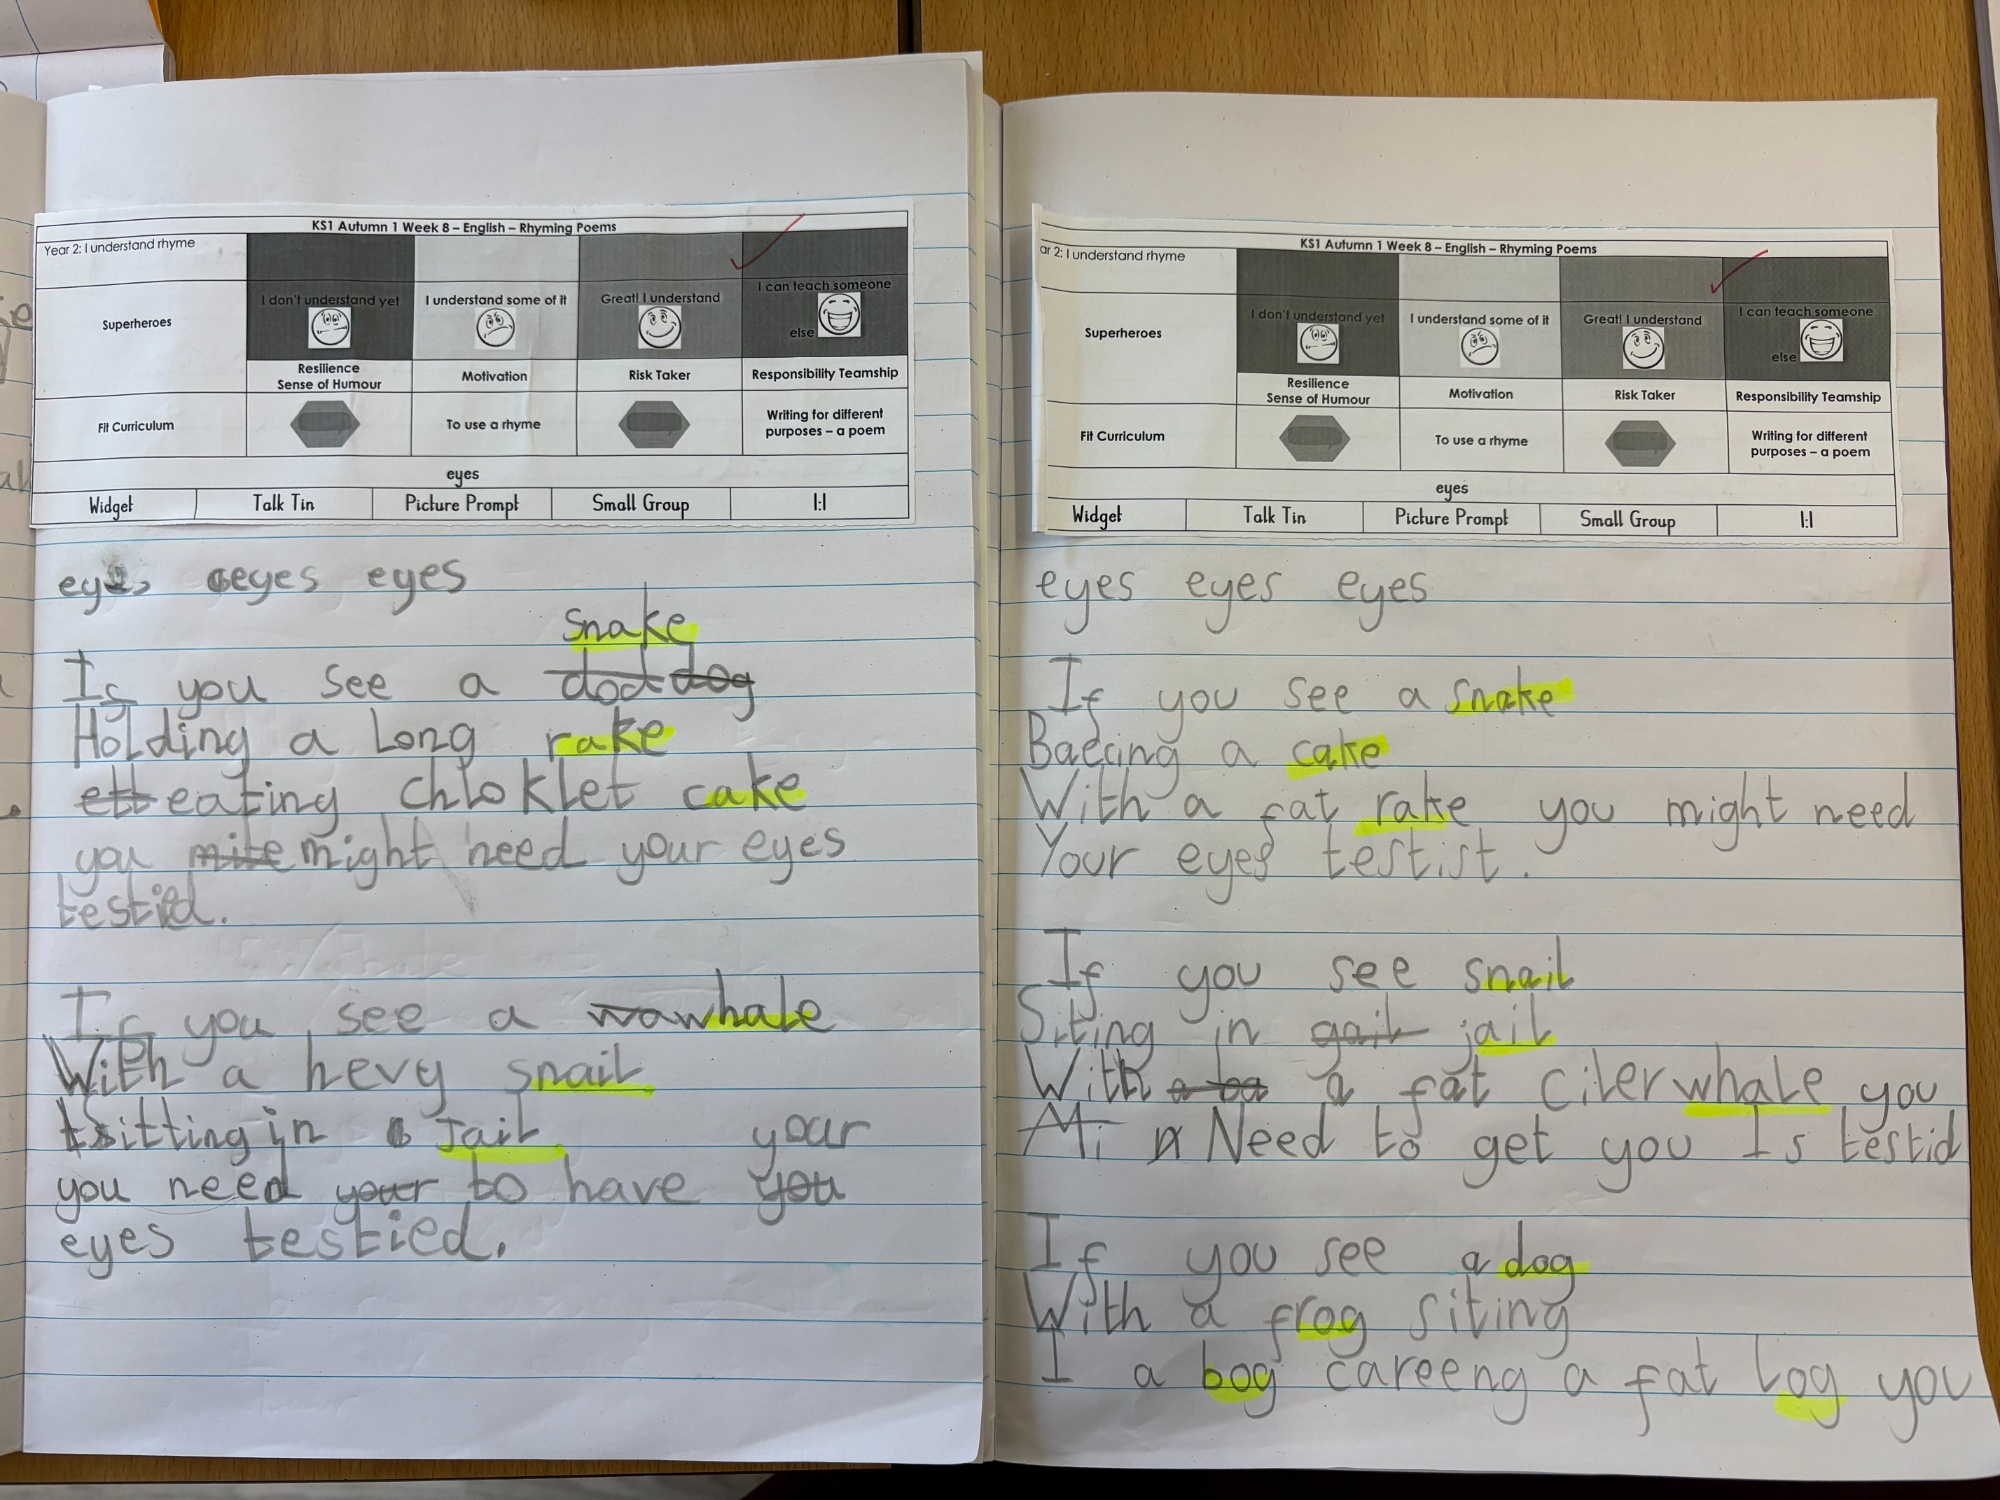 KS1 Autumn 1 Week 8 – English – Rhyming Poems
Year 2: I understand rhyme
Superheroes
I don't understand yet
I understand some of it
Great! I understand
I can teach someone
else
Resilience
Sense of Humour
Motivation
Risk Taker
Responsibility Teamship
Fit Curriculum
To use a rhyme
Writing for different
purposes – a poem
eyes
Widget Talk Tin Picture Prompt Small Group 1:1
eyes eyes
snake
If you see a dod dog
Holding a Long rake
ett eating chloklet cake
you mite might need your eyes
testid.
If you see a wa whale
With a hevy snail
sitting in a Jail your
you need your to have you
eyes testied.
KS1 Autumn 1 Week 8 – English – Rhyming Poems
ar 2: I understand rhyme
Superheroes
I don't understand yet
I understand some of it
Great! I understand
I can teach someone
else
Resilience
Sense of Humour
Motivation
Risk Taker
Responsibility Teamship
Fit Curriculum
To use a rhyme
Writing for different
purposes – a poem
eyes
Widget Talk Tin Picture Prompt Small Group 1:1
eyes eyes eyes
If you see a snake
Baecing a cake
With a fat rake you might need
Your eyes testist.
If you see snail
Siting in gail jail
With a ba a fat ciler whale you
Mi n Need to get you Is testid
If you see a dog
With a frog siting
I a bog careeng a fat Log you